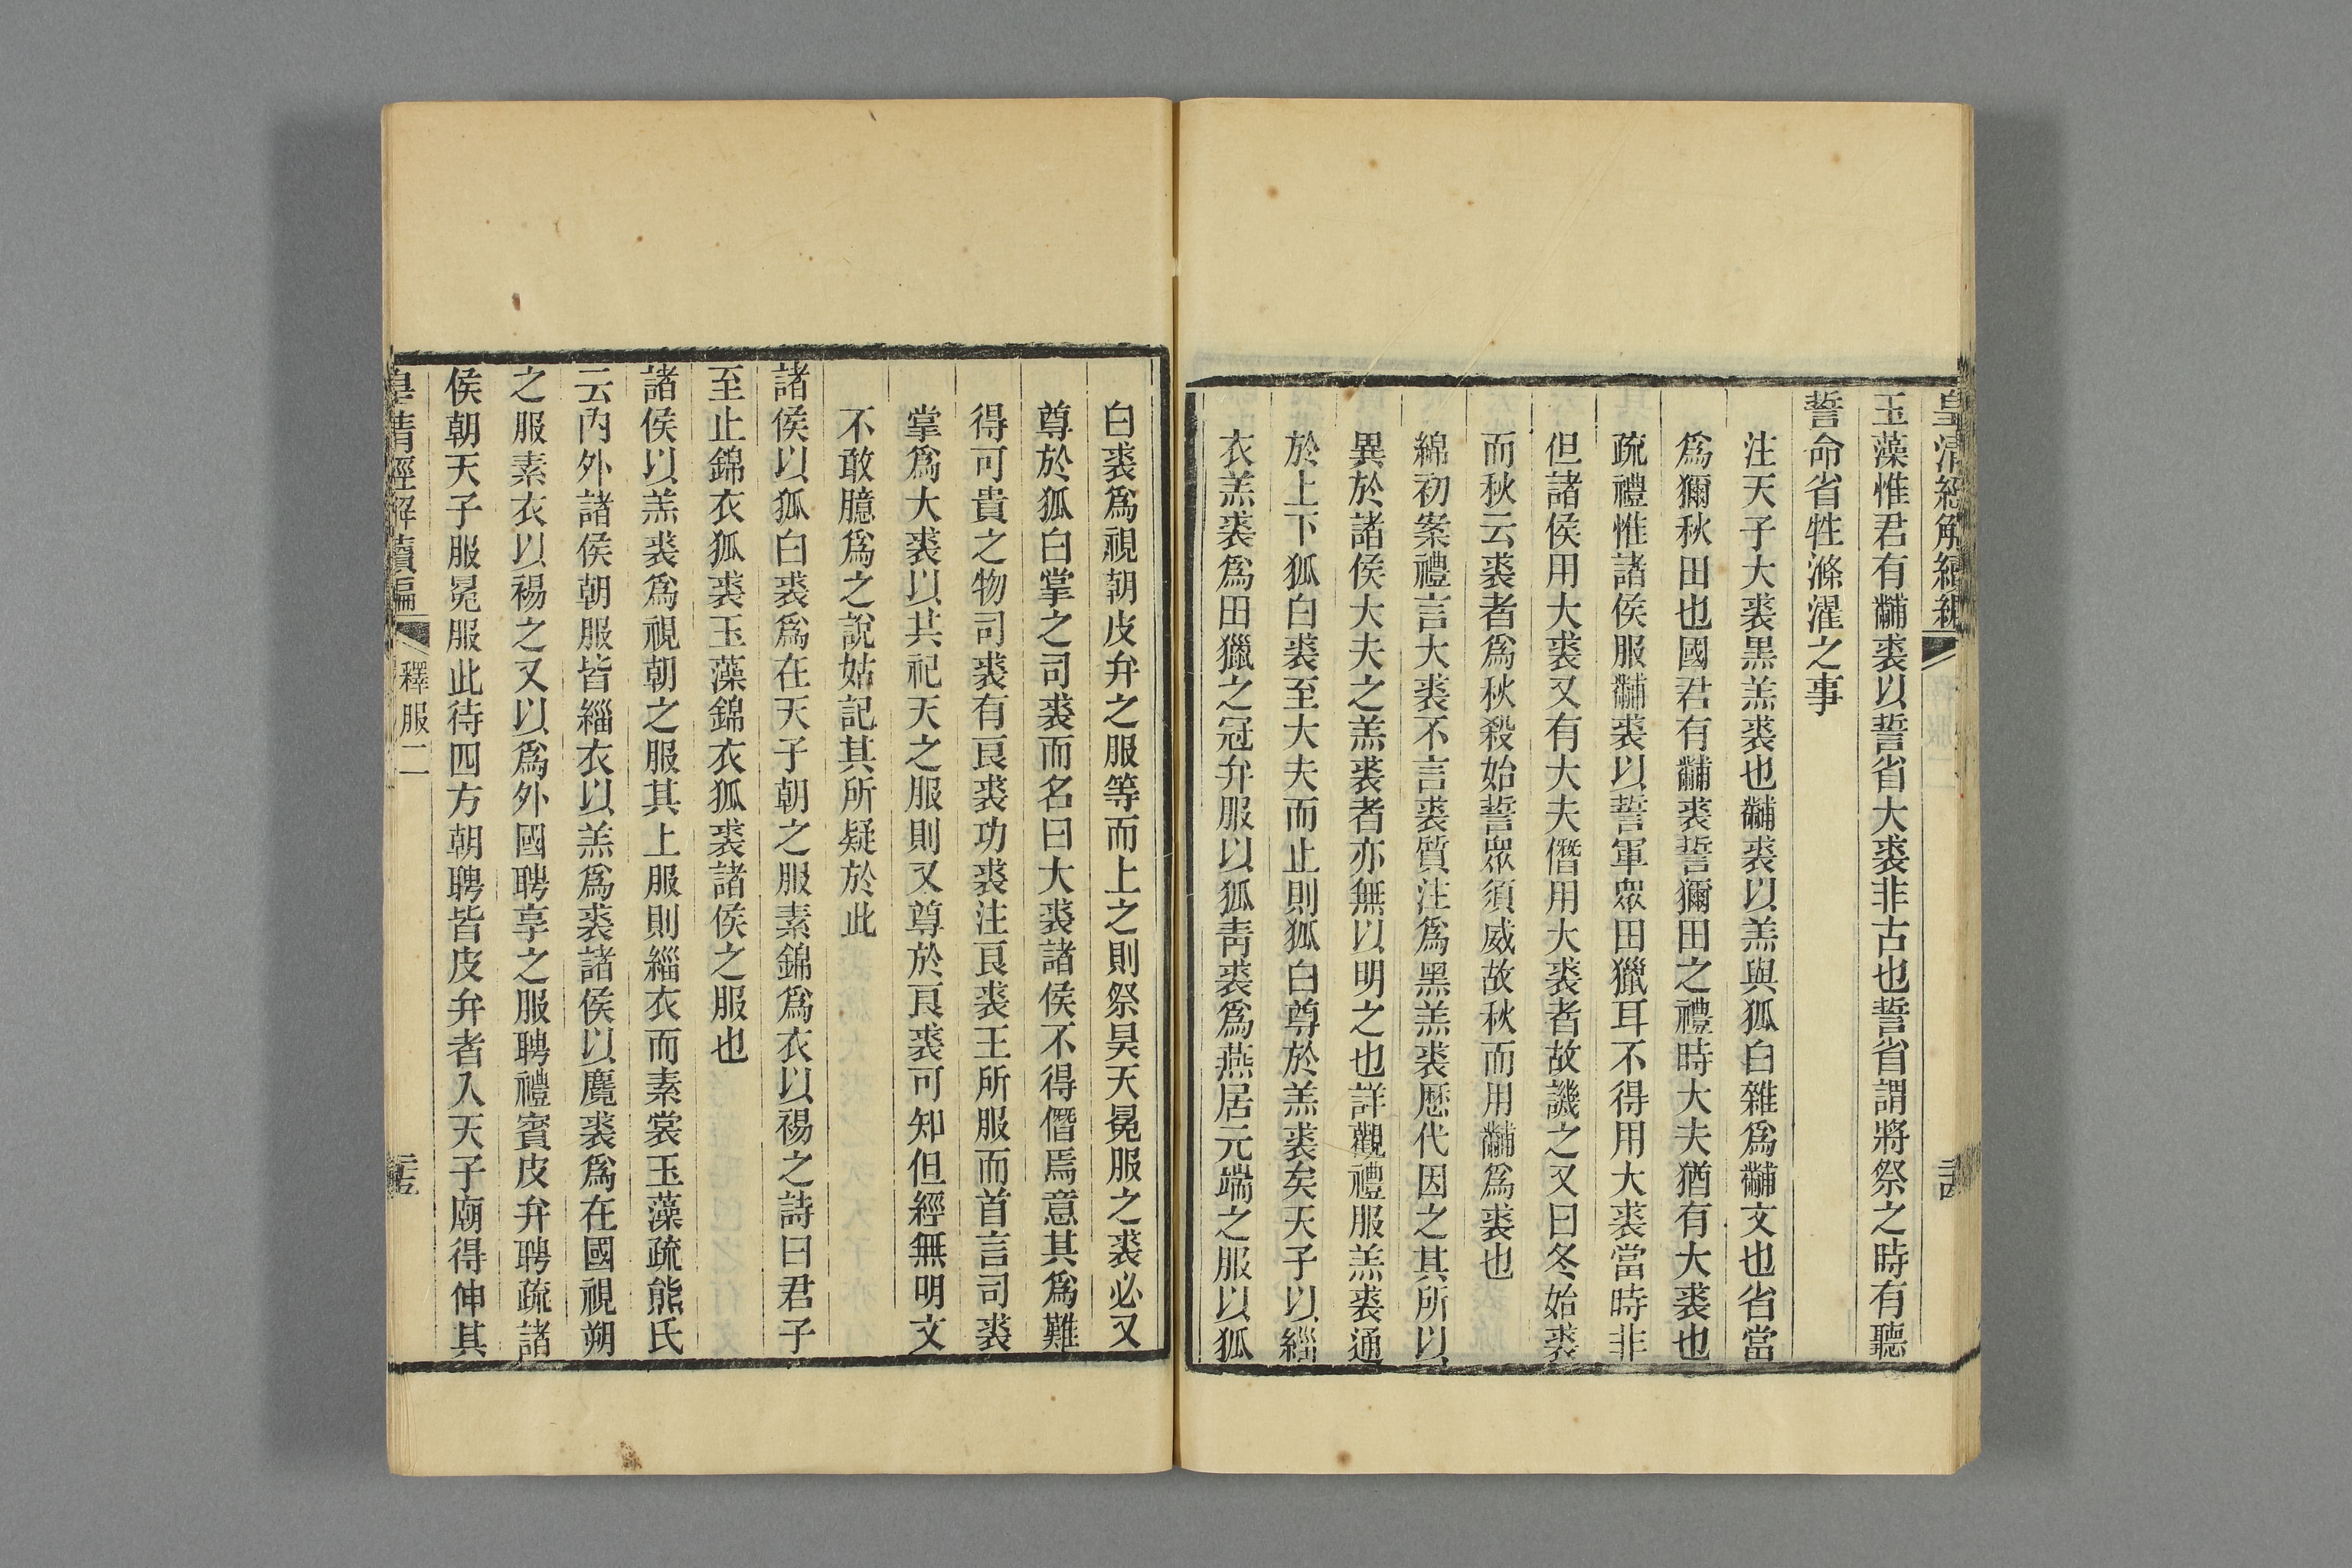 皇清經解續編
玉藻惟君有黼裘以誓省大裘非古也誓省謂將祭之時有聽
誓命省牲滌濯之事
注天子大裘黑羔裘也黼裘以羔與狐白雜爲黼文也省當
爲獮秋田也國君有黼裘誓獮田之禮時大夫猶有大裘也
疏禮惟諸侯服黼裘以誓軍眾田獵耳不得用大裘當時非
但諸侯用大裘又有大夫僭用大裘者故譏之又曰冬始裘
而秋云裘者爲秋殺始誓眾須威故秋而用黼爲裘也
綿初案禮言大裘不言裘質注爲黑羔裘歷代因之其所以
異於諸侯大夫之羔裘者亦無以明之也詳觀禮服羔裘通
於上下狐白裘至大夫而止則狐白尊於羔裘矣天子以緇
衣羔裘爲田獵之冠弁服以狐靑裘爲燕居元端之服以狐
白裘爲視朝皮弁之服等而上之則祭昊天冕服之裘必又
尊於狐白掌之司裘而名曰大裘諸侯不得僭焉意其爲難
得可貴之物司裘有良裘功裘注良裘王所服而首言司裘
掌爲大裘以共祀天之服則又尊於良裘可知但經無明文
不敢臆爲之說姑記其所疑於此
諸侯以狐白裘爲在天子朝之服素錦爲衣以裼之詩曰君子
至止錦衣狐裘玉藻錦衣狐裘諸侯之服也
諸侯以羔裘爲視朝之服其上服則緇衣而素裳玉藻疏熊氏
云內外諸侯朝服皆緇衣以羔爲裘諸侯以麑裘爲在國視朔
之服素衣以裼之又以爲外國聘享之服聘禮賓皮弁聘疏諸
侯朝天子服冕服此待四方朝聘皆皮弁者入天子廟得伸其
皇清經解續編
釋服二